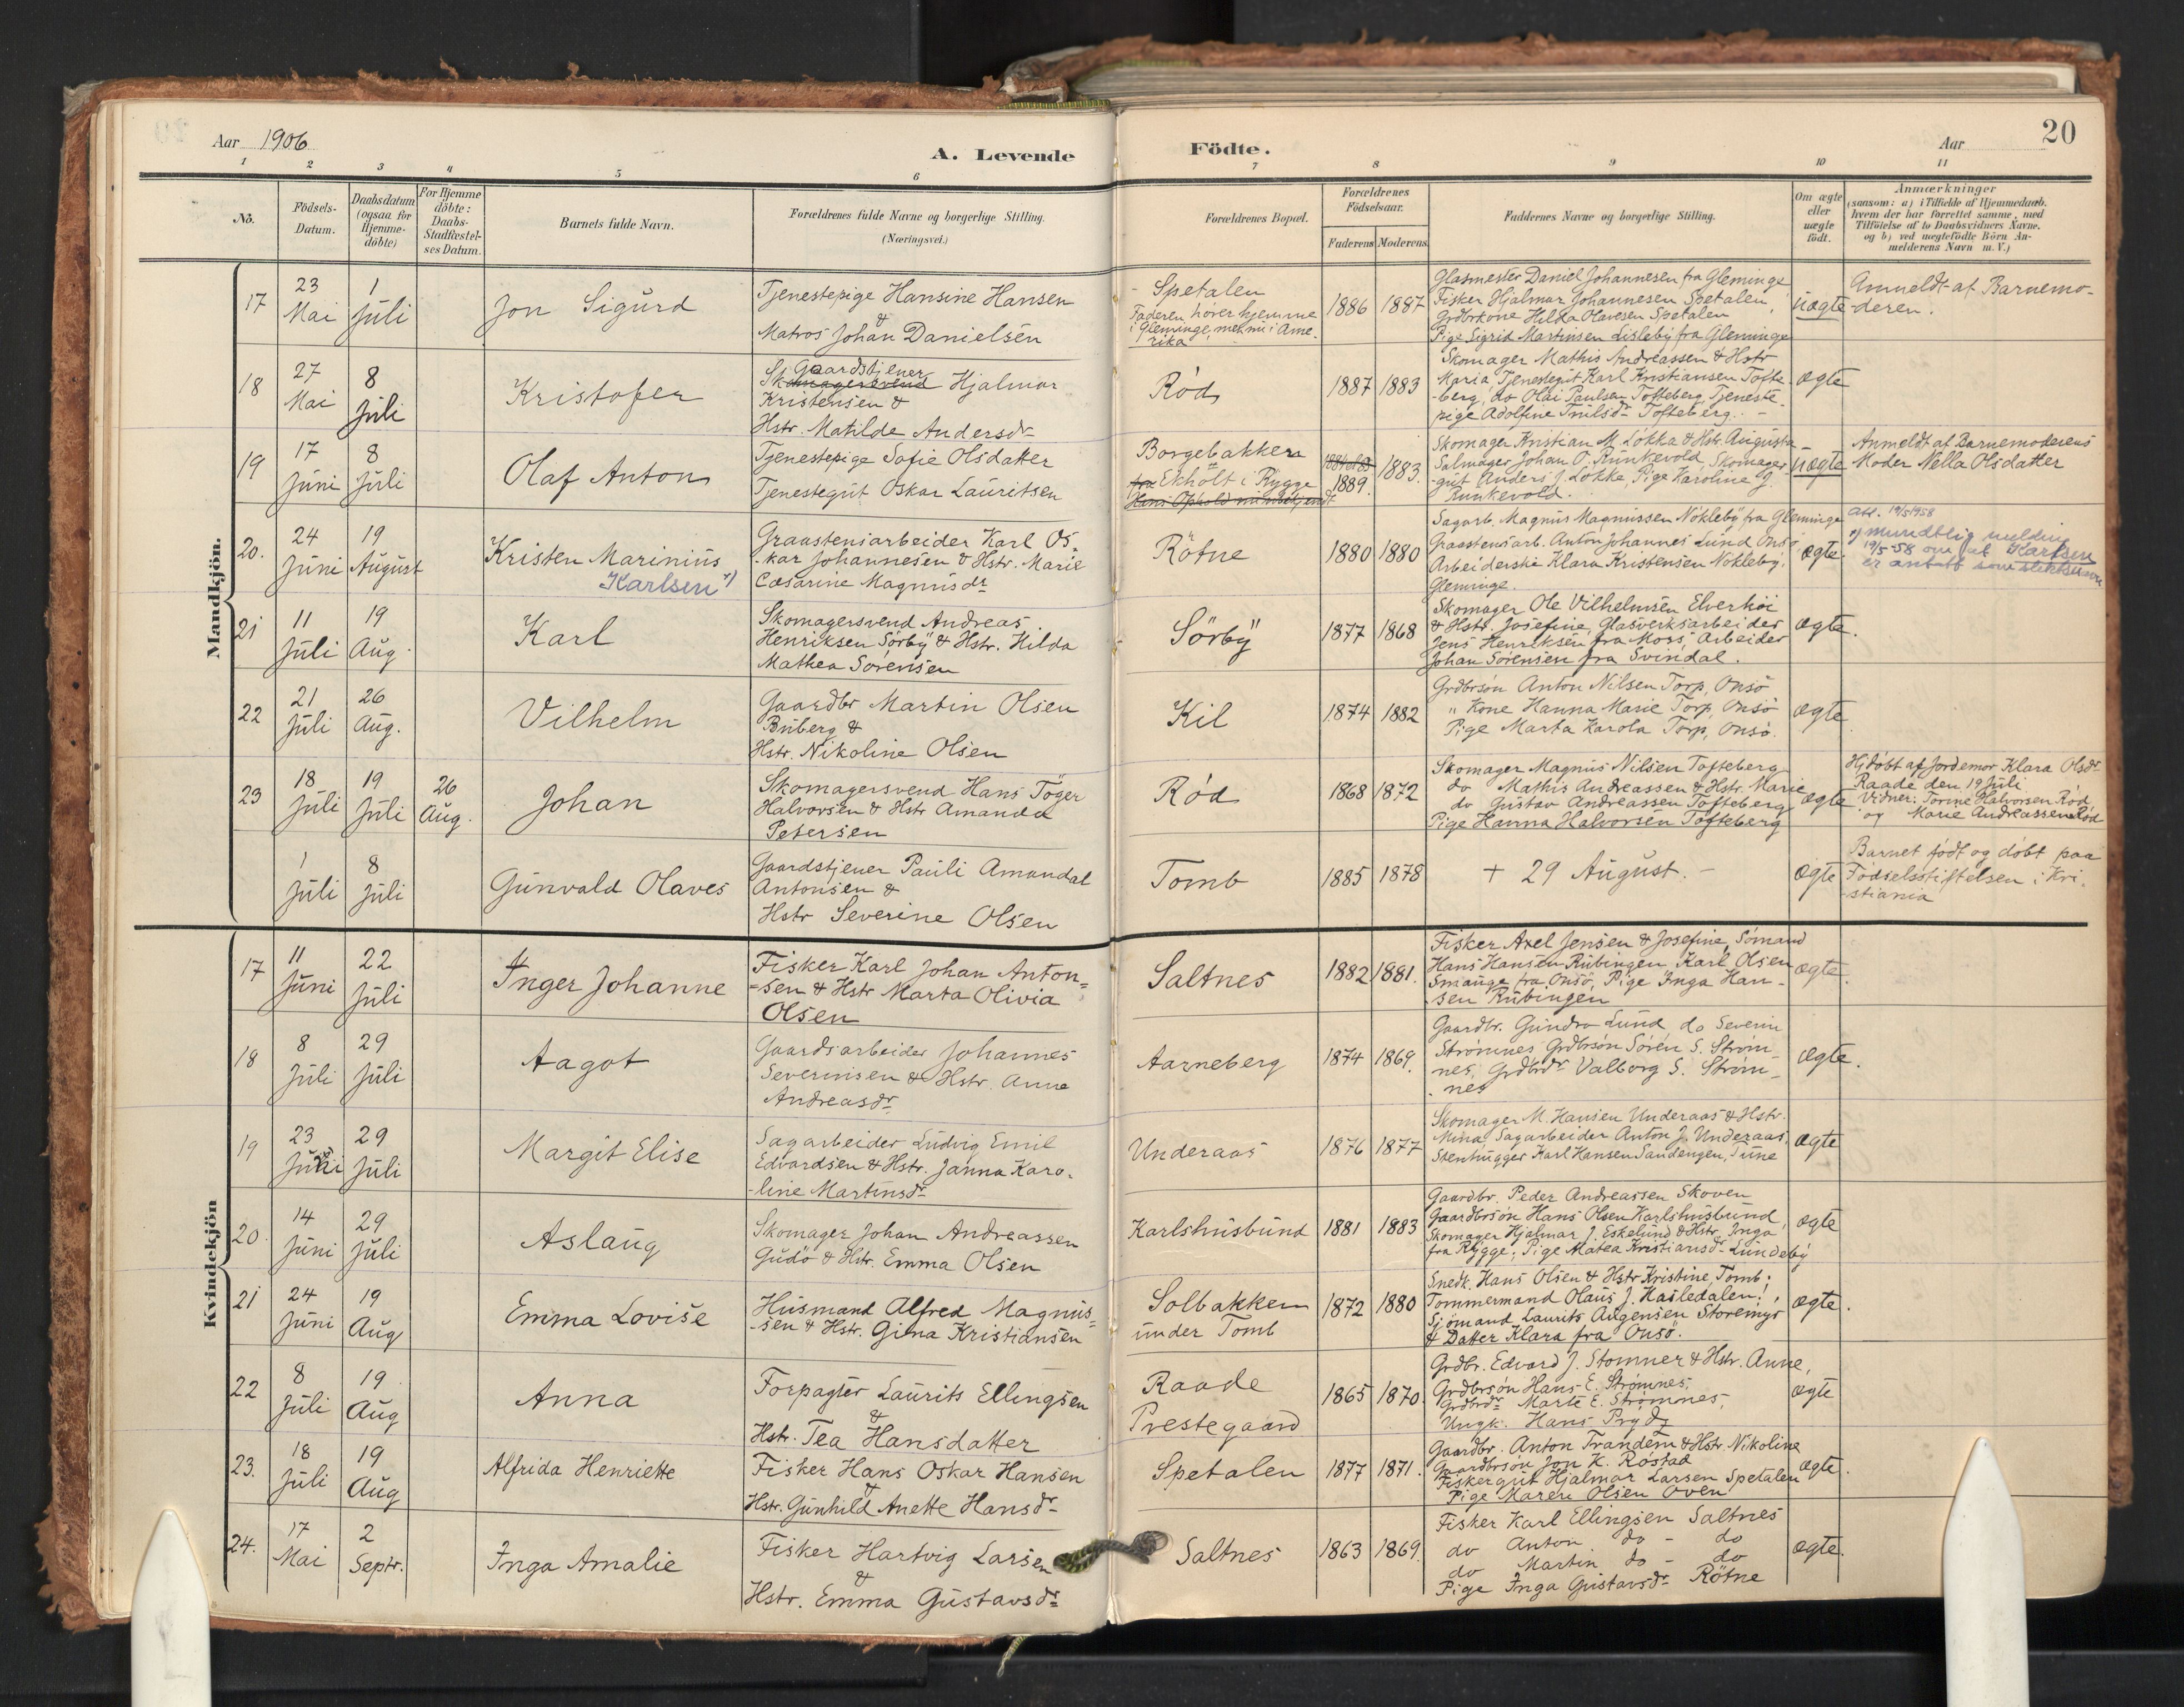 Aar 1906
A. Levende Födte.
Aar
20
1 2 3 4 5 6 7 8 9 10 11
No.
Födsels-Datum.
Daabsdatum (ogsaa for Hjemme-döbte)
For Hjemme döbte: Daabs-Stadfæstel-ses Datum.
Barnets fulde Navn.
Forældrenes fulde Navne og borgerlige Stilling.
(Næringsvei.)
Forældrenes Bopæl.
Forældrenes Födselsaar.
Faderens Moderens
Faddernes Navne og borgerlige Stilling.
Om ægte eller uægte födt.
Anmærkninger
(saasom: a) i Tilfælde af Hjemmedaab.
hvem der har forrettet samme, med
Tilföielse af to Daabsvidners Navne.
og b) ved uægtefödte Börn An-
melderens Navn m. V.)
Mandkjön.
17
23 Mai
1 Juli
Jon Sigurd
Tjenestepige Hansine Hansen
&
Matros Johan Danielsen
Spetalen
Faderen hører hjemme
i Gleminge, men nu i Ame-
rika
1886 1887
Glasmester Daniel Johannesen fra Gleminge
Fisker Hjalmar Johannesen Spetalen
Grdbrkone Hilda Olavesen Spetalen
Pige Sigrid Martinsen Lisleby fra Gleminge
uægte
Anmeldt af Barnemo-
deren.
18
27 Mai
8 Juli
Kristofer
Gaardstjener
Skomagersvend Hjalmar
Kristensen &
Hstr. Matilde Andersdr
Rød
1887 1883
Skomager Mathis Andreassen & Hstr
Maria, Tjenestegut Karl Kristiansen Tofte-
berg, do Olai Paulsen Tofteberg, Tjeneste-
pige Adolfine Trulsdr Tofteberg.
ægte
19
17 Juni
8 Juli
Olaf Anton
Tjenestepige Sofie Olsdatter
Tjenestegut Oskar Lauritsen
Borgebakken
fra Ekholt i Rygge
1889. 1883.
Skomager Kristian M. Løkka & Hstr. Augusta
Salmager Johan O. Runkevold, Skomager-
gut Anders J. Løkke, Pige Karoline J.
Runkevold.
uægte
Anmeldt af Barnemoderens
Moder Nella Olsdatter
20.
24 Juni
19 August
Kristen Marinius
Karlsen x)
Graastensarbeider Karl Os-
kar Johannesen & Hstr. Marie
Cæsarine Magnusdr
Rötne
1880 1880
Sagarb. Magnus Magnussen Nökleby fra Gleminge
Graastensarb. Anton Johannes Lund Onsö
Arbeiderske Klara Kristensen Nökleby,
Gleminge.
ægte.
Att. 19/5 1958
x) mundtlig melding
19/5-58 om at Karlsen
er antatt som slektsnavn
21
11 Juli
19 Aug.
Karl
Skomagersvend Andreas
Henriksen Sörby & Hstr. Hilda
Mathea Sörensen
Sörby
1877 1868
Skomager Ole Vilhelmsen Elverhöi
& Hstr. Josefine, Glasverksarbeider
Jens Henriksen fra Moss, Arbeider
Johan Sörensen fra Svindal.
ægte.
22
21 Juli
26 Aug.
Vilhelm
Gaardbr Martin Olsen
Buberg &
Hstr. Nikoline Olsen
Kil
1874 1882
Grdbrsön Anton Nilsen Torp, Onsö
" Kone Hanna Marie Torp, Onsö
Pige Marta Karola Torp, Onsö.
ægte
23
18 Juli
19 Juli
26 Aug.
Johan
Skomagersvend Hans Töger
Halvorsen & Hstr Amanda
Petersen
Rød
1868 1872
Skomager Magnus Nilsen Tofteberg
do Mathis Andreassen & Hstr. Marie
do Gustav Andreassen Tofteberg
Pige Hanna Halvorsen Tofteberg
ægte
Hjdöbt af Jordemor Klara Olsdr
Raade den 19 Juli
Vidner: Torine Halvorsen Rød
og Marie Andreassen Rød
1 Juli
8 Juli
Gunvald Olaves
Gaardstjener Pauli Amandal
Antonsen &
Hstr Severine Olsen
Tomb
1885 1878
+ 29 August. -
ægte
Barnet födt og döbt paa
Födselsstiftelsen i Kri-
stiania
Kvindekjön
17
11 Juni
22 Juli
Inger Johanne
Fisker Karl Johan Anton-
sen & Hstr Marta Olivia
Olsen
Saltnes
1882 1881.
Fisker Axel Jensen & Josefine, Sömand
Hans Hansen Rubingen, Karl Olsen
Smauge fra Onsö, Pige Inga Han-
sen Rubingen
ægte.
18
8 Juli
29 Juli
Aagot
Gaardsarbeider Johannes
Severinsen & Hstr. Anne
Andreasdr
Aarneberg
1874 1869.
Gaardbr. Gundro Lund, do Severin
Strömnes, Grdbrsön Sören S. Ström-
nes, Grdbrdr Valborg S. Ström-
nes
ægte.
19
23 Juni
29 Juli
Margit Elise
Sagarbeider Ludvig Emil
Edvardsen & Hstr. Janna Karo-
line Martinsdr
Underaas
1876 1877
Skomager M. Hansen Underaas & Hstr.
Mina, Sagarbeider Anton J. Underaas,
Stenhugger Karl Hansen Sandengen, Tune
ægte
20
14 Juni
29 Juli
Aslaug
Skomager Johan Andreassen
Gudö & Hstr. Emma Olsen
Karlshusbund
1881 1883
Gaardbr. Peder Andreassen Skoven
Gaardbrsön Hans Olsen Karlshusbund,
Skomager Hjalmar J. Eskelund & Hstr. Inga
fra Rygge, Pige Matea Kristiansdr Lundeby
ægte
21
24 Juni
19 Aug
Emma Lovise
Husmand Alfred Magnus-
sen & Hstr. Gina Kristiansen
Solbakken
under Tomb
1872 1880
Snedk. Hans Olsen & Hstr Kristine, Tomb;
Tommermand Olaus J. Hasledalen;
Sjömand Laurits Augensen Storemyr
& Datter Klara fra Onsö.
ægte.
22
8 Juli
19 Aug
Anna
Forpagter Laurits Ellingsen
&
Hstr. Tea Hansdatter
Raade
Prestegaard
1865 1870.
Grdbr. Edvard J. Stomner & Hstr. Anne,
Grdbrsön Hans E. Strömnes,
Grdbrdr Marte E. Strömnes,
Ungk. Hans Prydz
ægte
23.
18 Juli
19 Aug
Alfrida Henriette
Fisker Hans Oskar Hansen
&
Hstr. Gunhild Anette Hansdr
Spetalen
1877 1871.
Gaardbr. Anton Trandem & Hstr. Nikoline
Gaardbrsön Jon K. Röstad
Fiskergut Hjalmar Larsen Spetalen
Pige Maren Olsen Oven
ægte.
24.
17 Mai
2 Septr.
Inga Amalie
Fisker Hartvig Larsen
&
Hstr. Emma Gustavsdr
Saltnes
1863 1869.
Fisker Karl Ellingsen Saltnes
do Anton do - do
do Martin do - do
Pige Inga Gustavsdr Rötne
ægte.